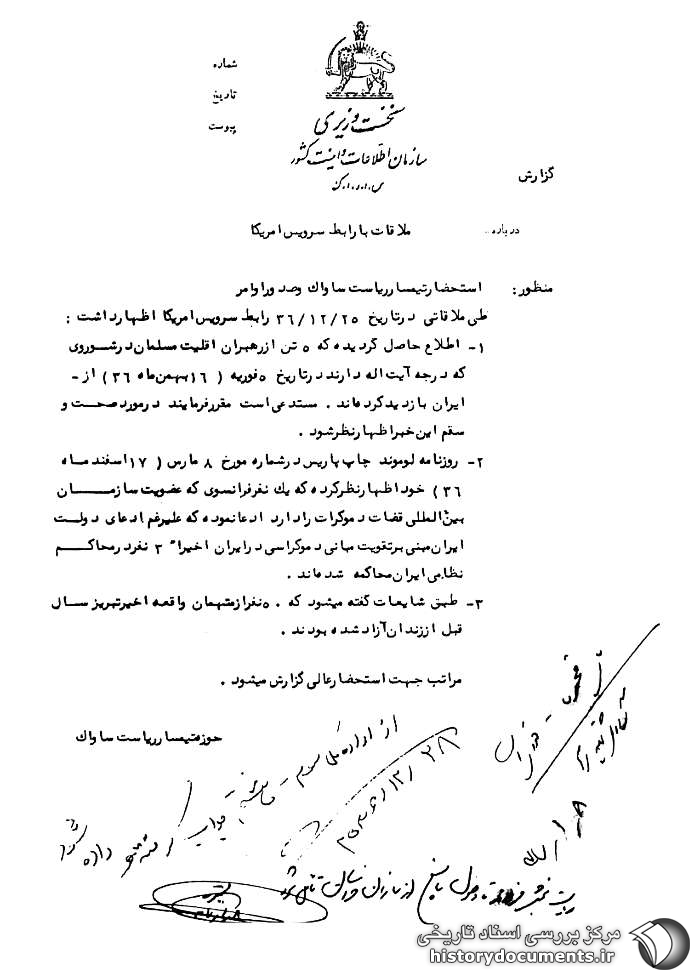 شماره
تاریخ
پیوست
نخست وزیری
سازمان اطلاعات و امنیت کشور
س.ا.و.ا.ک
گزارش
درباره..
ملاقات با رابط سرویس امریکا
منظور : استحضار تیمسار ریاست ساواک وصدور اوامر
طی ملاقاتی درتاریخ ۳۶/۱۲/۲۵ رابط سرویس امریکا اظهارداشت :
۱- اطلاع حاصل گردیده که ۵ تن ازرهبران اقلیت مسلمان درشوروی
که درجه آیت اله دارند درتاریخ ۵ فوریه ( ۱۶ بهمن ماه ۳۶ ) از -
ایران بازدیدکرده‌اند . مستدعی است مقررفرمایند درمورد صحت و
سقم این خبراظهارنظرشود .
۲- روزنامه لوموند چاپ پاریس درشماره مورخ ۸ مارس ( ۱۷ اسفند ماه
۳۶ ) خود اظهارنظرکرده که یک نفرفرانسوی که عضویت سازمان
بین‌المللی قضات دموکرات را دارد ادعانموده که علیرغم ادعای دولت
ایران مبنی برتقویت مبانی دموکراسی درایران اخیرا" ۳ نفردرمحاکم
نظامی ایران محاکمه شده‌اند .
۳- طبق شایعات گفته میشود که ۵۰ نفرازمتهمان واقعه اخیرتبریز سال
قبل اززندان آزاد شده بودند .
مراتب جهت استحضارعالی گزارش میشود .
حوزه تیمسار ریاست ساواک
از اداره کل سوم
جواب
داده شود
۲۵۳۶/۱۲/۲۸
مرکز بررسی اسناد تاریخی
historydocuments.ir